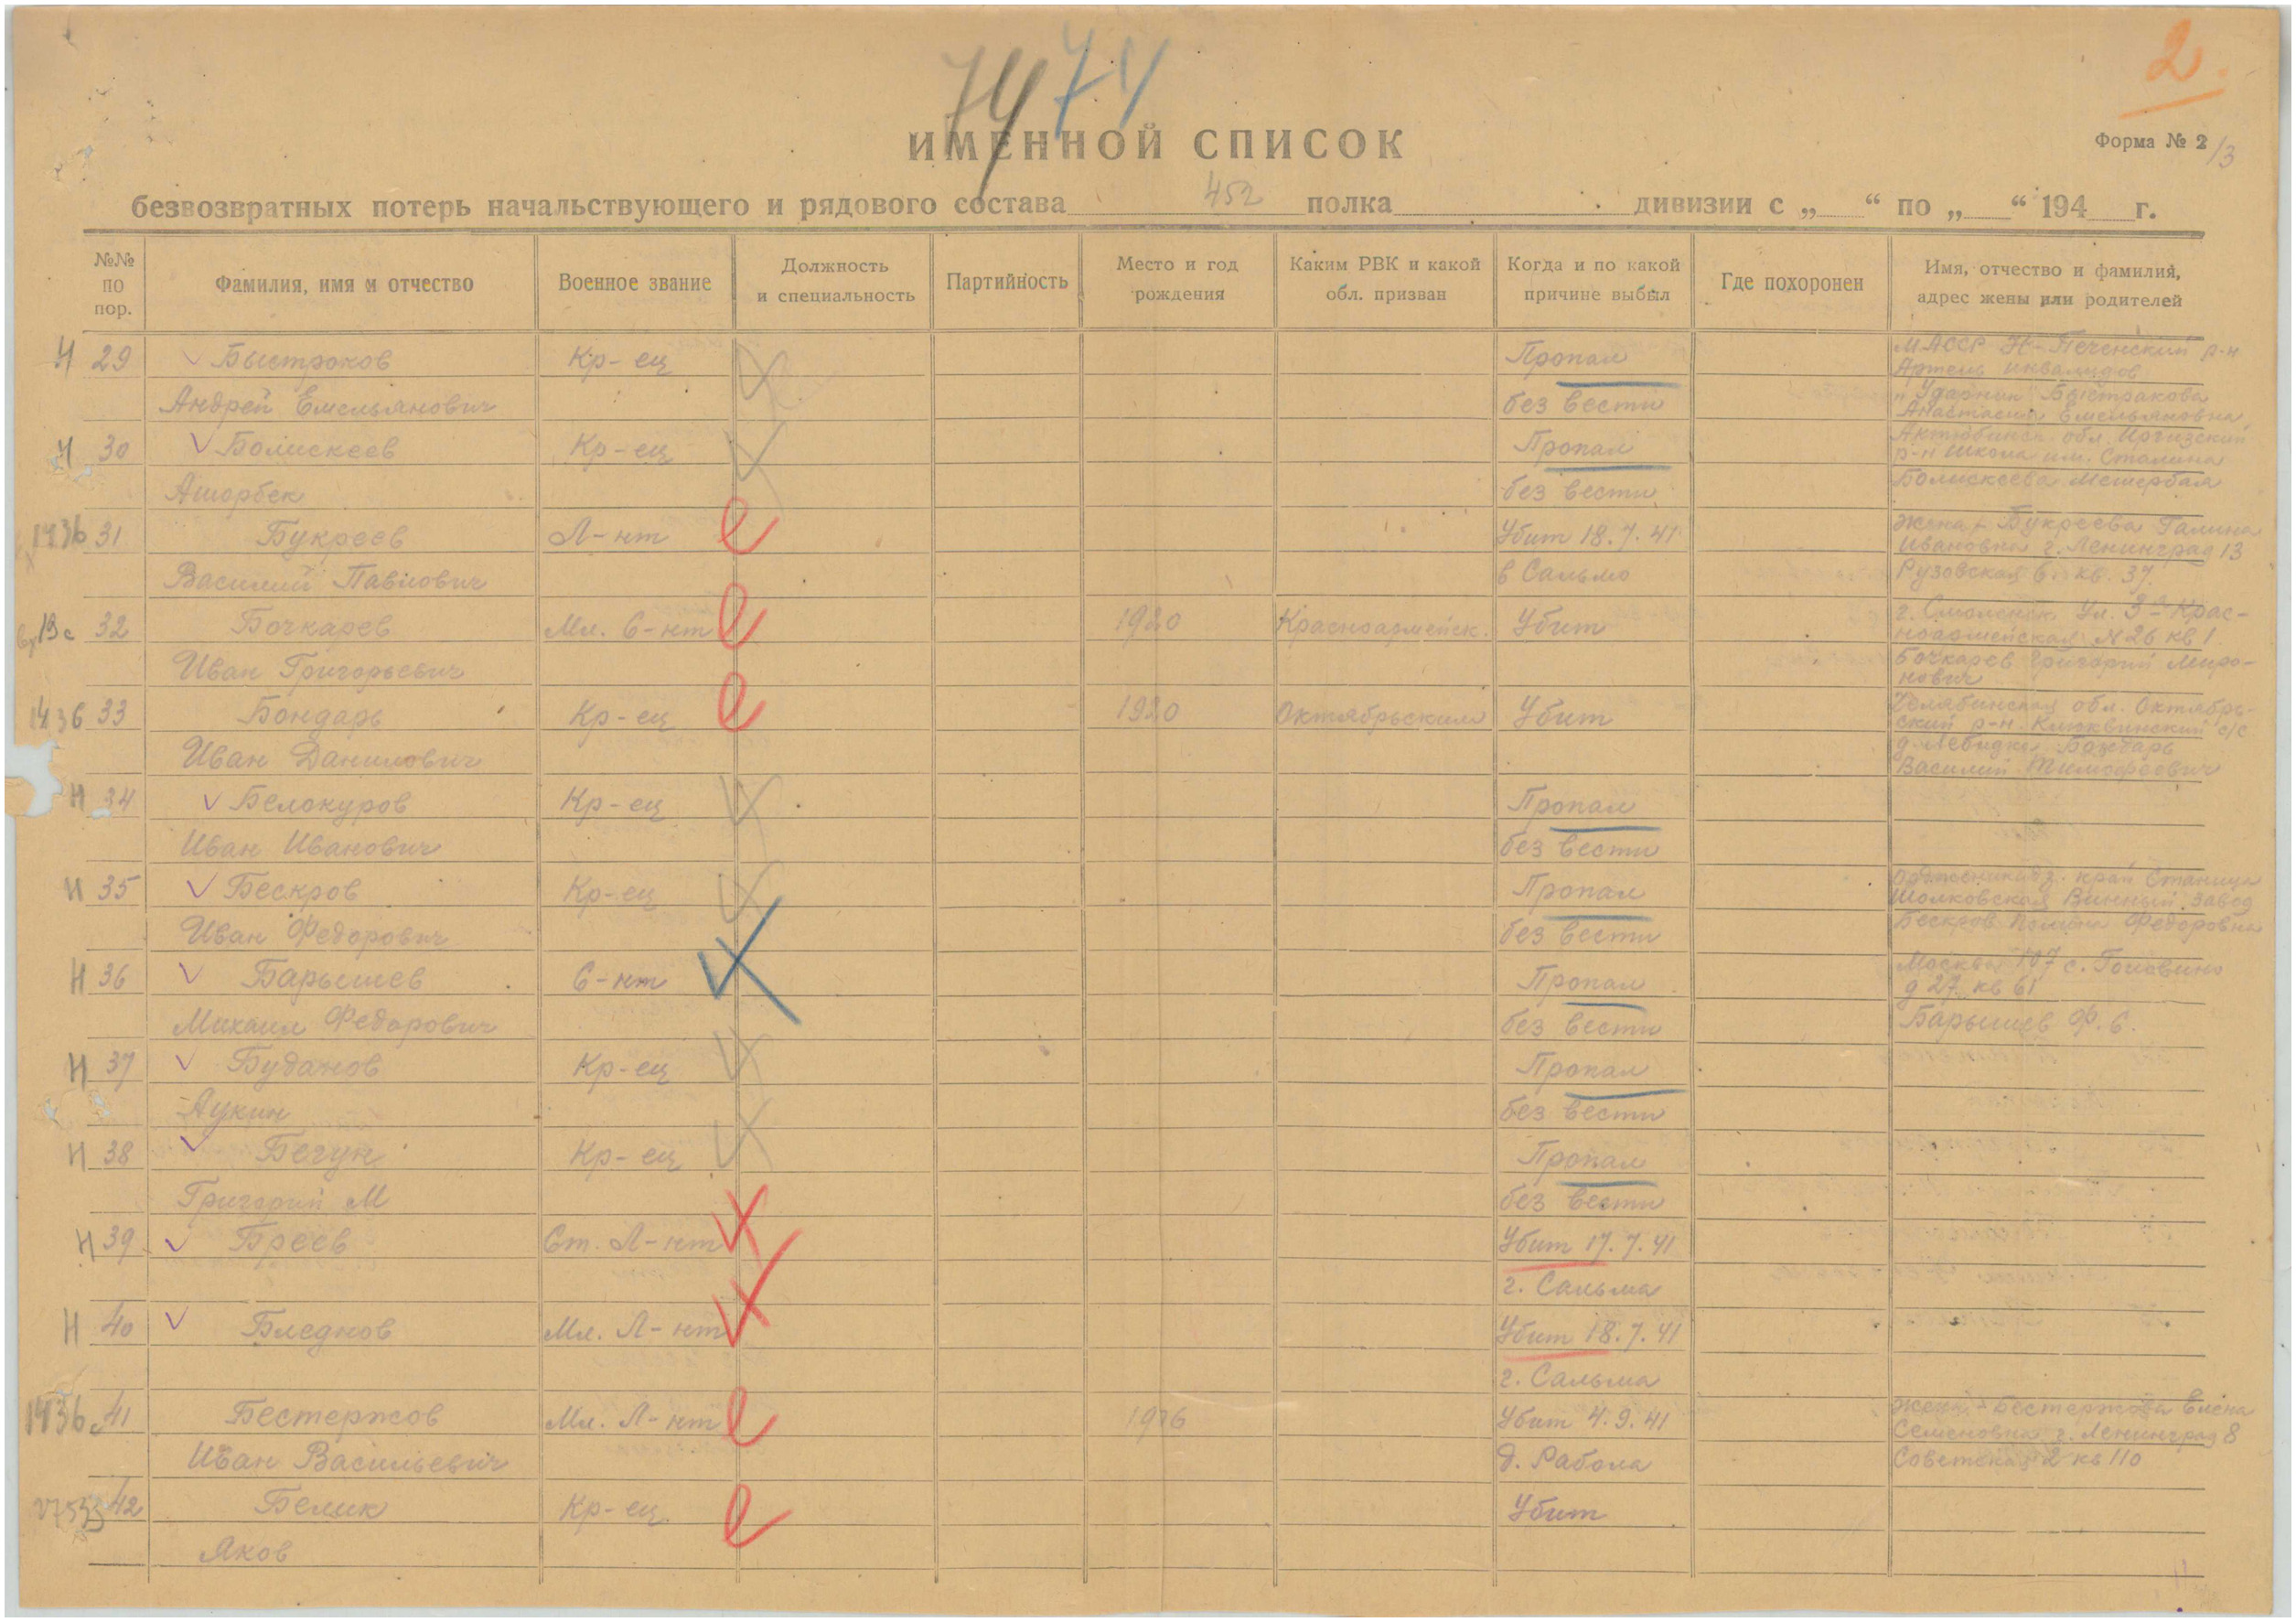 74 74
2.
ИМЕННОЙ СПИСОК
Форма № 2/3
безвозвратных потерь начальствующего и рядового состава 452 полка дивизии с „ “ по „ “ 194 г.
№№ по пор.
Фамилия, имя и отчество
Военное звание
Должность и специальность
Партийность
Место и год рождения
Каким РВК и какой обл. призван
Когда и по какой причине выбыл
Где похоронен
Имя, отчество и фамилия, адрес жены или родителей
Н 29 Быстроков Кр-ец Пропал МАССР Н-Печенский р-н
Артель инвалидов
Андрей Емельянович без вести "Ударник" Быстракова
Анастасия Емельяновна
Н 30 Болискеев Кр-ец Пропал Актюбинск. обл. Иргизский
р-н школа им. Сталина
Ашорбек без вести Болискеева
1436 31 Букреев Л-нт Убит 18.7.41 жена - Букреева Галина
Ивановна г. Ленинград 13
Василий Павлович в Сальмо Рузовская 6. кв. 37.
32 Бочкарев Мл. С-нт 1920 Красноармейск. Убит г. Смоленск Ул. 3-я Крас-
ноармейская №26 кв 1
Иван Григорьевич Бочкарев Григорий Миро-
нович
1436 33 Бондарь Кр-ец 1920 Октябрьским Убит Челябинская обл. Октябрь-
ский р-н. Клюквинский с/с
Иван Данилович д. Лебидки Бондарь
Василий Тимофеович
Н 34 Белокуров Кр-ец Пропал
Иван Иванович без вести
Н 35 Бескров Кр-ец Пропал Орджоникидз. край Станица
Шолковская Винный завод
Иван Федорович без вести Бескров Федоровна
Н 36 Барышев С-нт Пропал Москва 107 с. Головино
д 27 кв 61
Михаил Федорович без вести Барышев Ф. С.
Н 37 Буданов Кр-ец Пропал
Лукин без вести
Н 38 Бегун Кр-ец Пропал
Григорий М без вести
Н 39 Бреев Ст. Л-нт Убит 17.7.41
г. Сальма
Н 40 Бледнов Мл. Л-нт Убит 18.7.41
г. Сальма
1436 41 Бестержов Мл. Л-нт 1916 Убит 4.9.41 жена - Бестержова Елена
Семеновна г. Ленинград 8
Иван Васильевич д. Рабола Советская 2 кв 110
42 Белик Кр-ец Убит
Яков